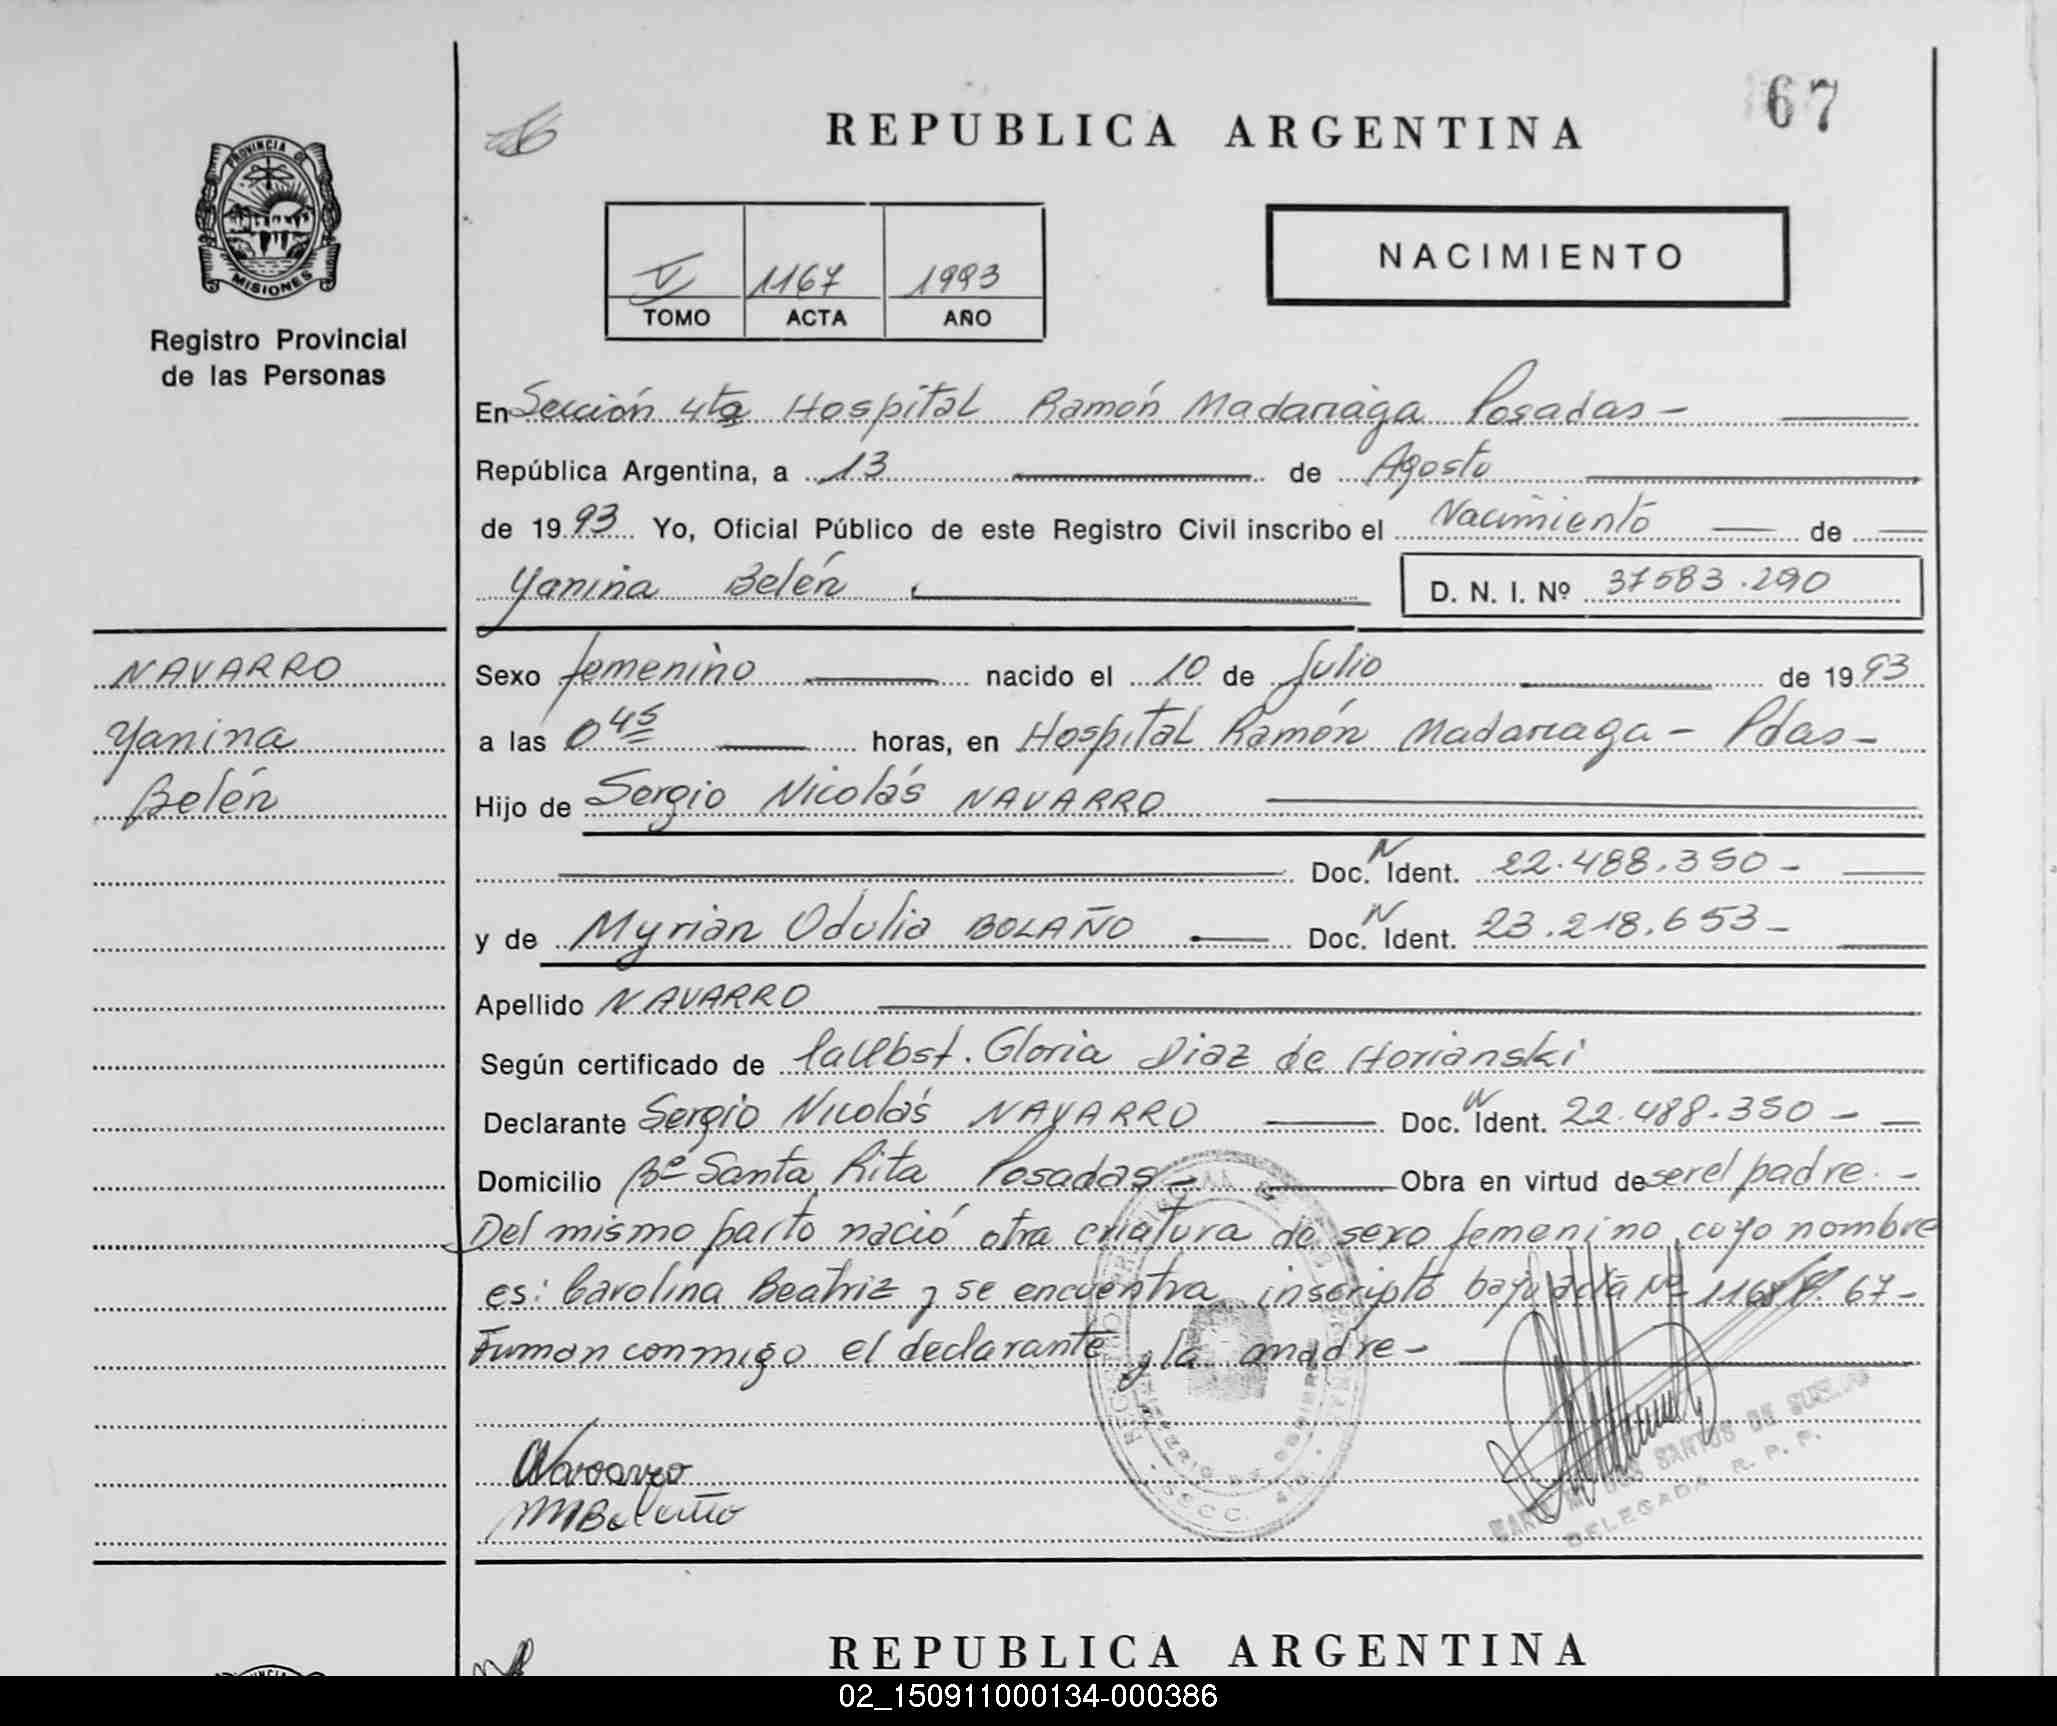 67
REPUBLICA ARGENTINA
PROVINCIA DE
MISIONES
Registro Provincial
de las Personas
NACIMIENTO
V 1167 1993
TOMO ACTA AÑO
En Sección 4ta Hospital Ramón Madariaga Posadas -
República Argentina, a 13 de Agosto
de 1993 Yo, Oficial Público de este Registro Civil inscribo el Nacimiento de
Yanina Belén D. N. I. Nº 37583.290
NAVARRO
Yanina
Belén
Sexo femenino nacido el 10 de Julio de 1993
a las 0 45 horas, en Hospital Ramón Madariaga - Pdas -
Hijo de Sergio Nicolás NAVARRO
Doc. N Ident. 22.488.350 -
y de Myrian Odulia BOLAÑO Doc. N Ident. 23.218.653 -
Apellido NAVARRO
Según certificado de la Obst. Gloria Diaz de Horianski
Declarante Sergio Nicolás NAVARRO Doc. N Ident. 22.488.350 -
Domicilio Bº Santa Rita Posadas - Obra en virtud de ser el padre. -
Del mismo parto nació otra criatura de sexo femenino cuyo nombre
es: Carolina Beatriz y se encuentra inscripto bajo acta Nº 1168 67 -
Firman conmigo el declarante y la madre -
Navarro
MBolaño
SANTOS DE
DELEGADA R. P. P.
REPUBLICA ARGENTINA
02_150911000134-000386